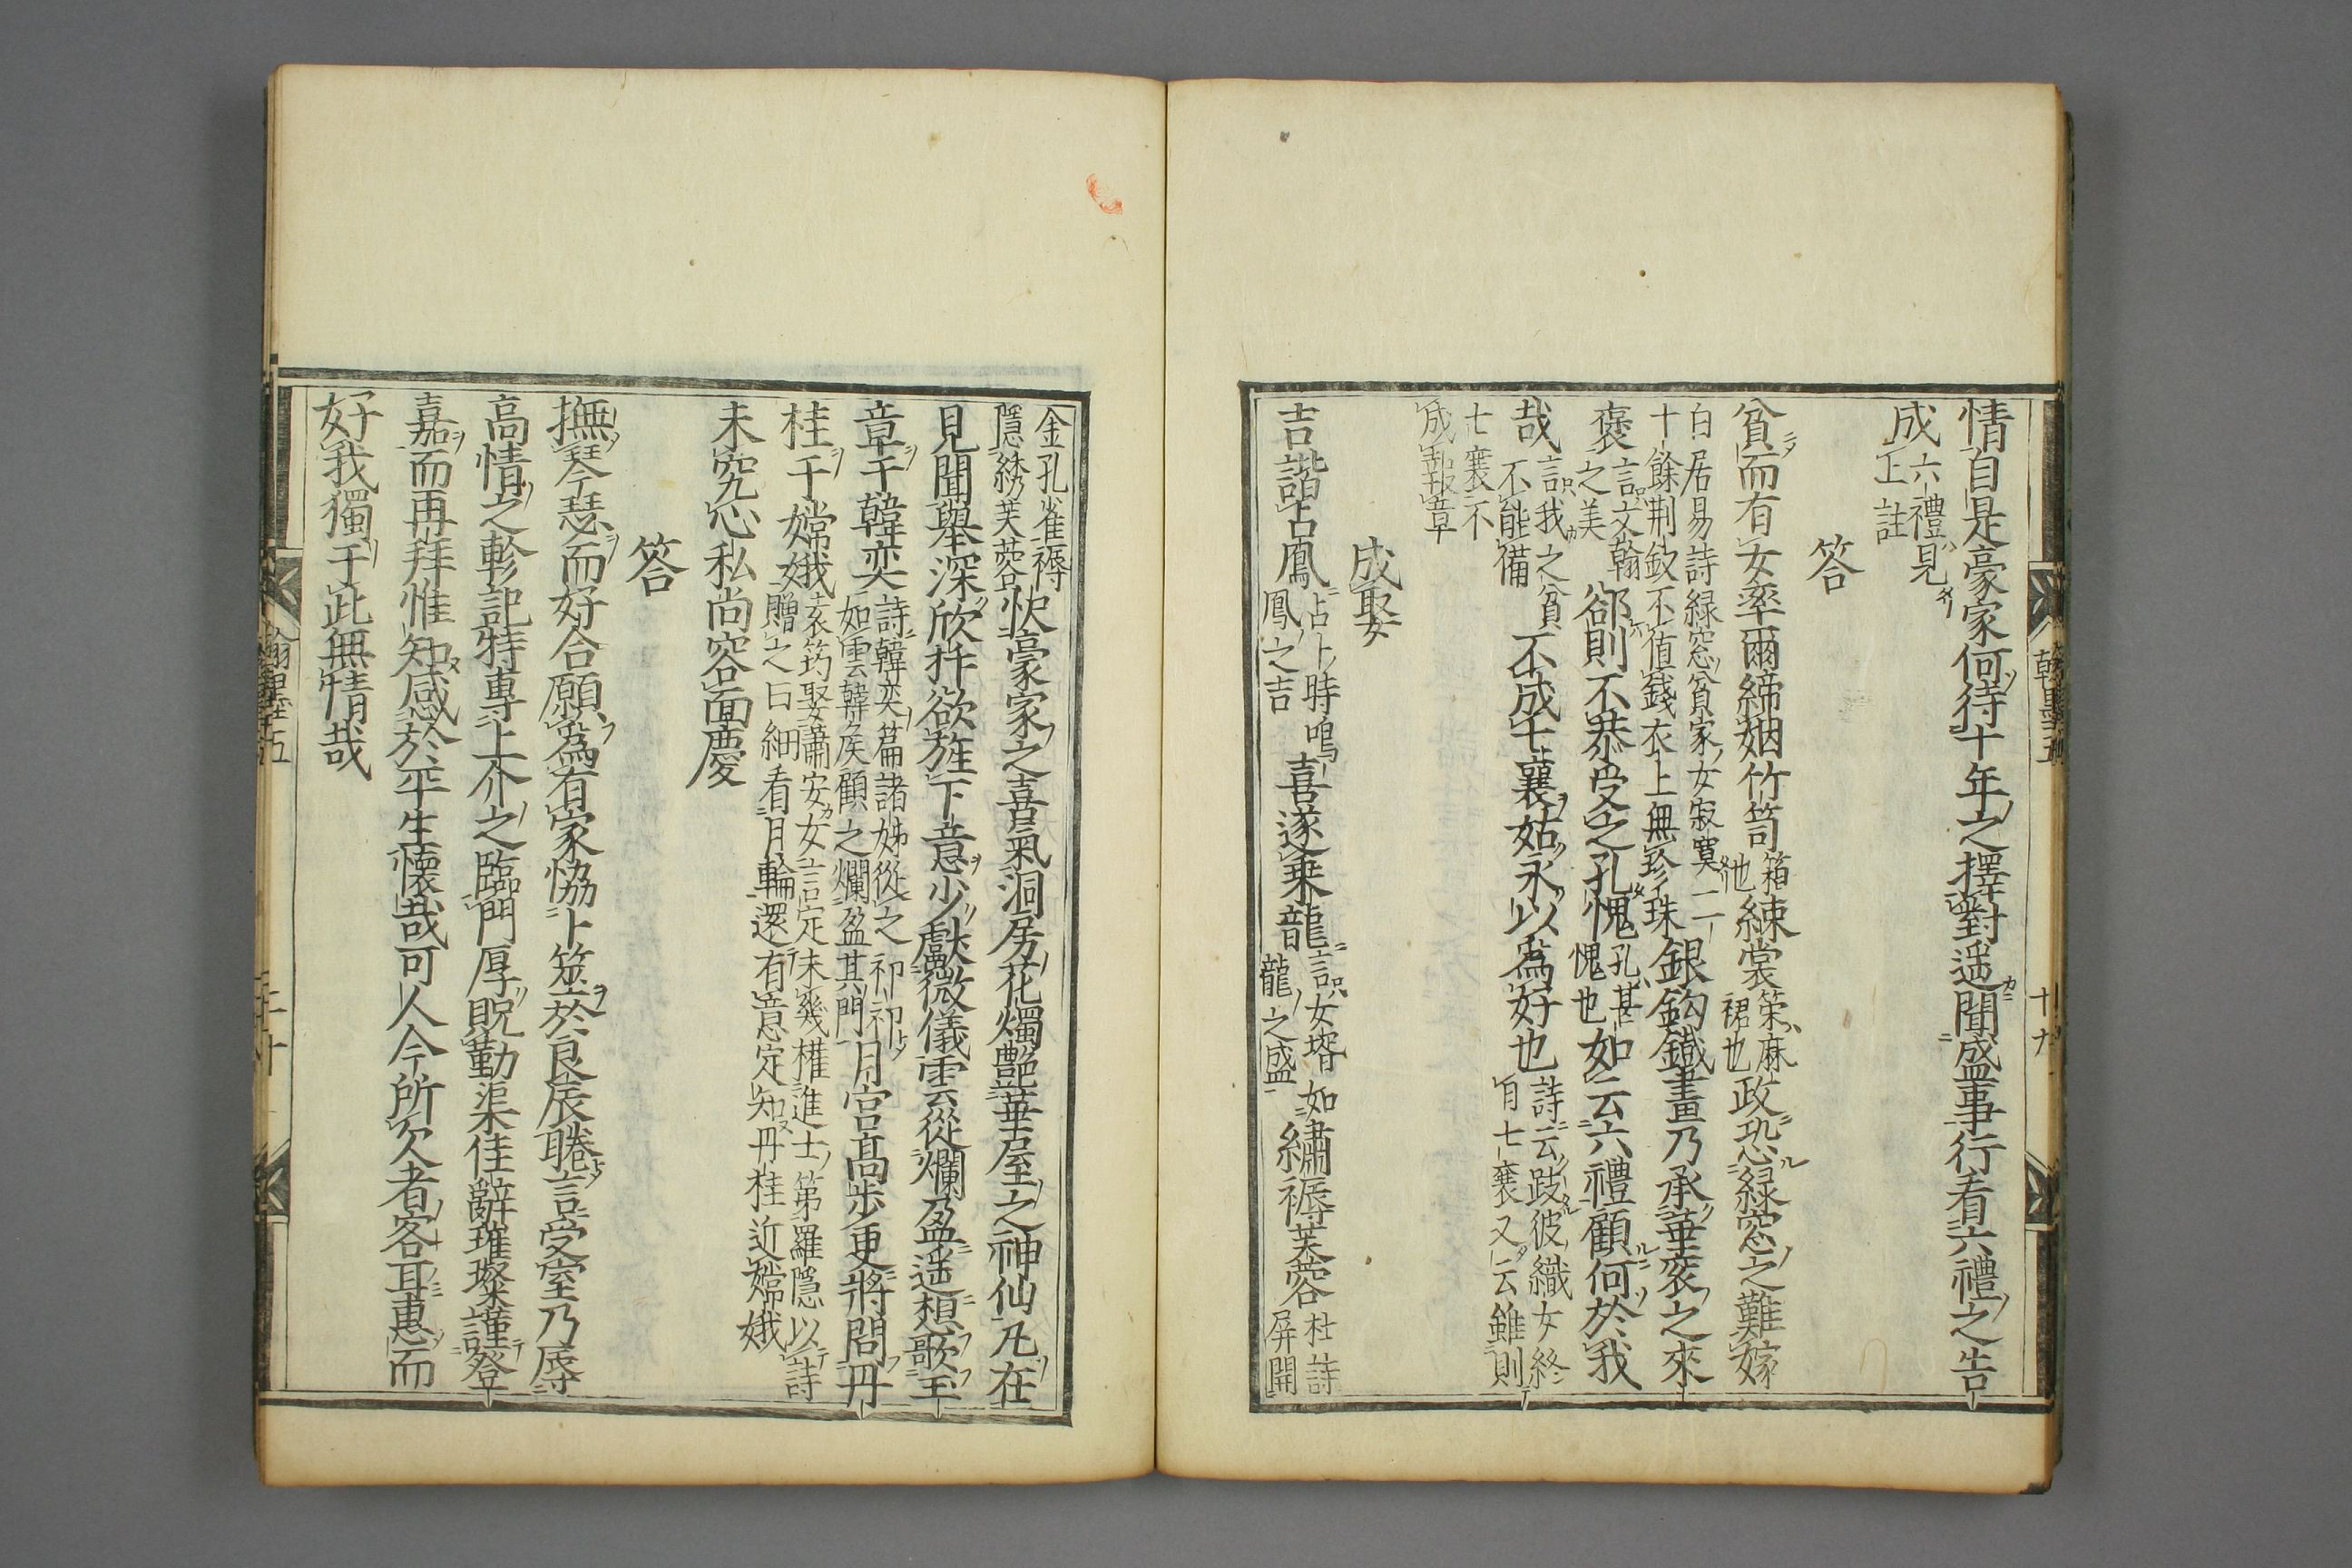 情自是豪家何待十年之擇對遥聞盛事行看六禮之告
成六禮見正註
答
貧而有女率爾締姻竹笥箱也練裳䇿麻裙也政恐緑窓之難嫁
白居易詩緑窓貧家女寂寞二十餘荆釵不値錢衣上無珍珠銀鈎鐡畫乃承華衮之來
褒言文翰之美郤則不恭受之孔愧孔甚愧也如云六禮顧何於我
哉言我之貧不能備不成七襄姑永以爲好也詩云跂彼織女終日七襄又云雖則
七襄不成報章
成娶
吉諧占鳳占卜時鳴鳳之吉喜遂乗龍言女壻如龍之盛繡褥芙蓉杜詩屏開
金孔雀褥隱綉芙蓉快豪家之喜氣洞房花燭艶華屋之神仙凡在
見聞舉深欣抃欲旌下意少獻微儀雲從爛盈遥想歌玉
章于韓奕詩韓奕篇諸娣從之祁祁如雲韓侯顧之爛盈其門月宮高歩更將問丹
桂于嫦娥袁筠娶蕭安女言定未幾擢進士第羅隱以詩贈之曰細看月輪還有意定知丹桂近嫦娥
未究心私尚容面慶
答
撫琴瑟而好合願爲有家協卜筮於良辰睠言受室乃辱
高情之軫記特專上介之臨門厚貺勤渠佳辭璀璨謹登
嘉而再拜惟知感於平生懐哉可人今所欠者客耳惠而
好我獨于此無情哉
翰墨五
十九
翰墨五
二十